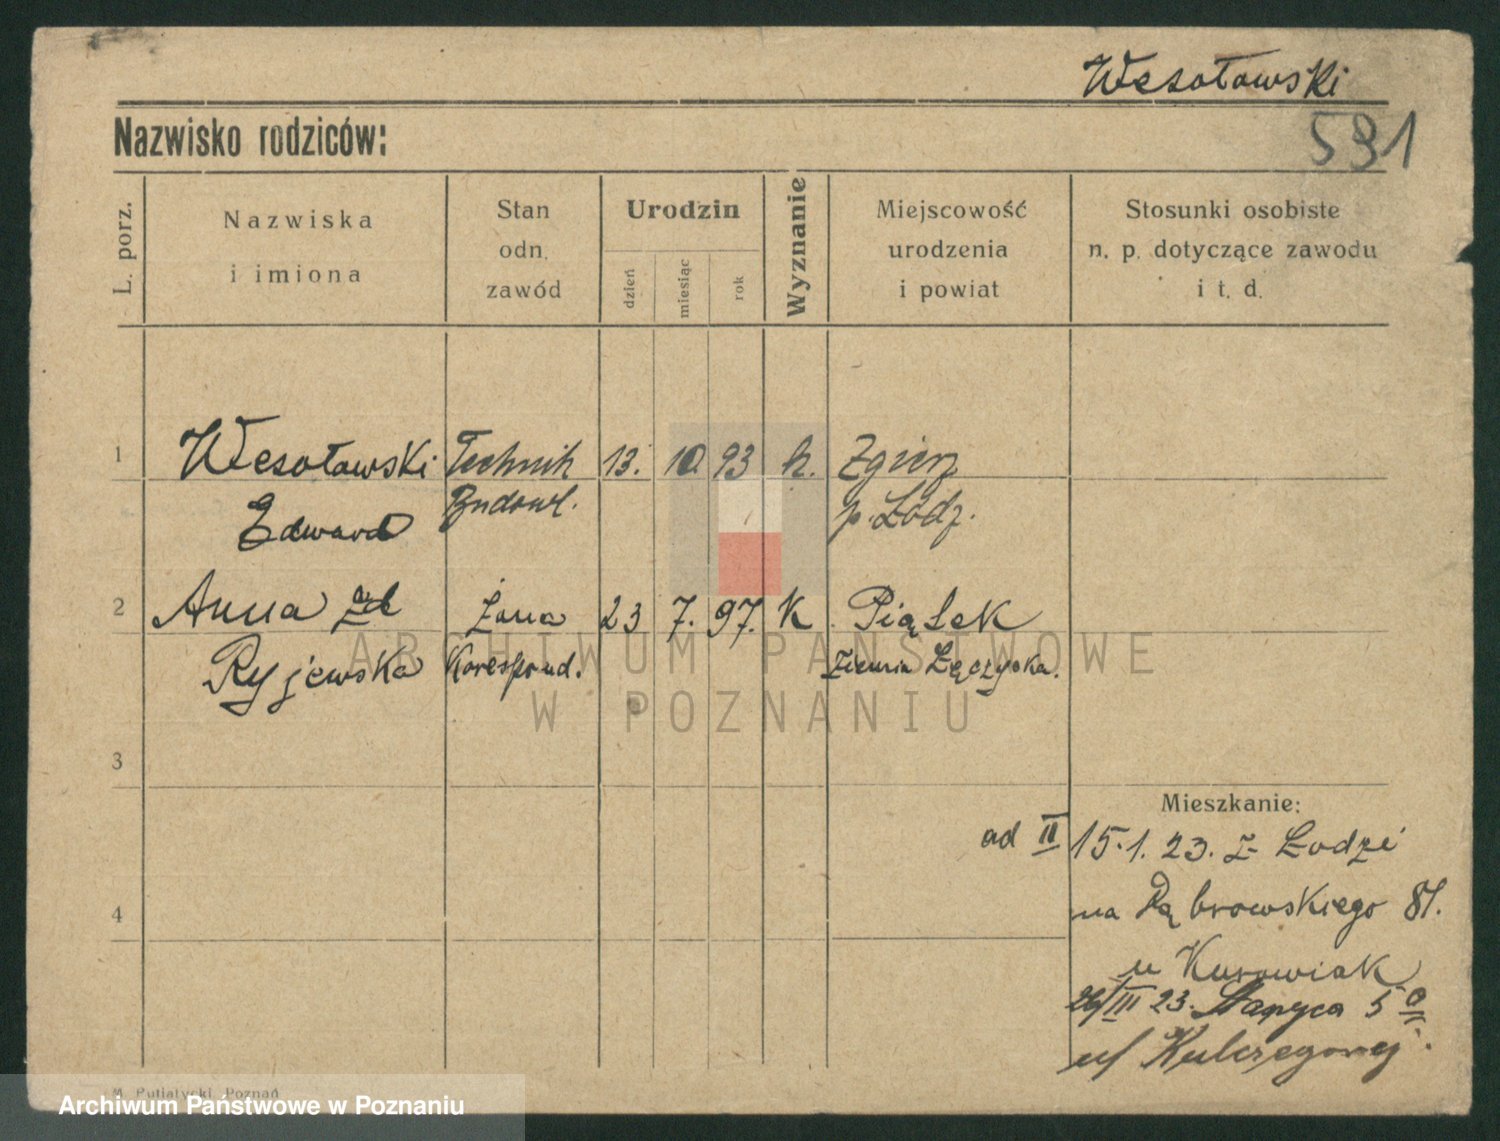 Wesołowski
Nazwisko rodziców:
591
L. porz.
Nazwiska
i imiona
Stan
odn.
zawód
Urodzin
dzień
miesiąc
rok
Wyznanie
Miejscowość
urodzenia
i powiat
Stosunki osobiste
n. p. dotyczące zawodu
i t. d.
1 Wesołowski Technik 13. 10. 93 k. Zgierz
Edward Budowl. p. Łódz.
2 Anna zd Żona 23 7. 97. K Piątek
Ryjewska Korespond. Ziemia Łęczycka.
ARCHIWUM PAŃSTWOWE
W POZNANIU
3
Mieszkanie:
od II 15.1.23. z Łodzi
4 na Dąbrowskiego 81.
u Kurowiak
26/III 23. 5
M. Putiatycki, Poznań
Archiwum Państwowe w Poznaniu